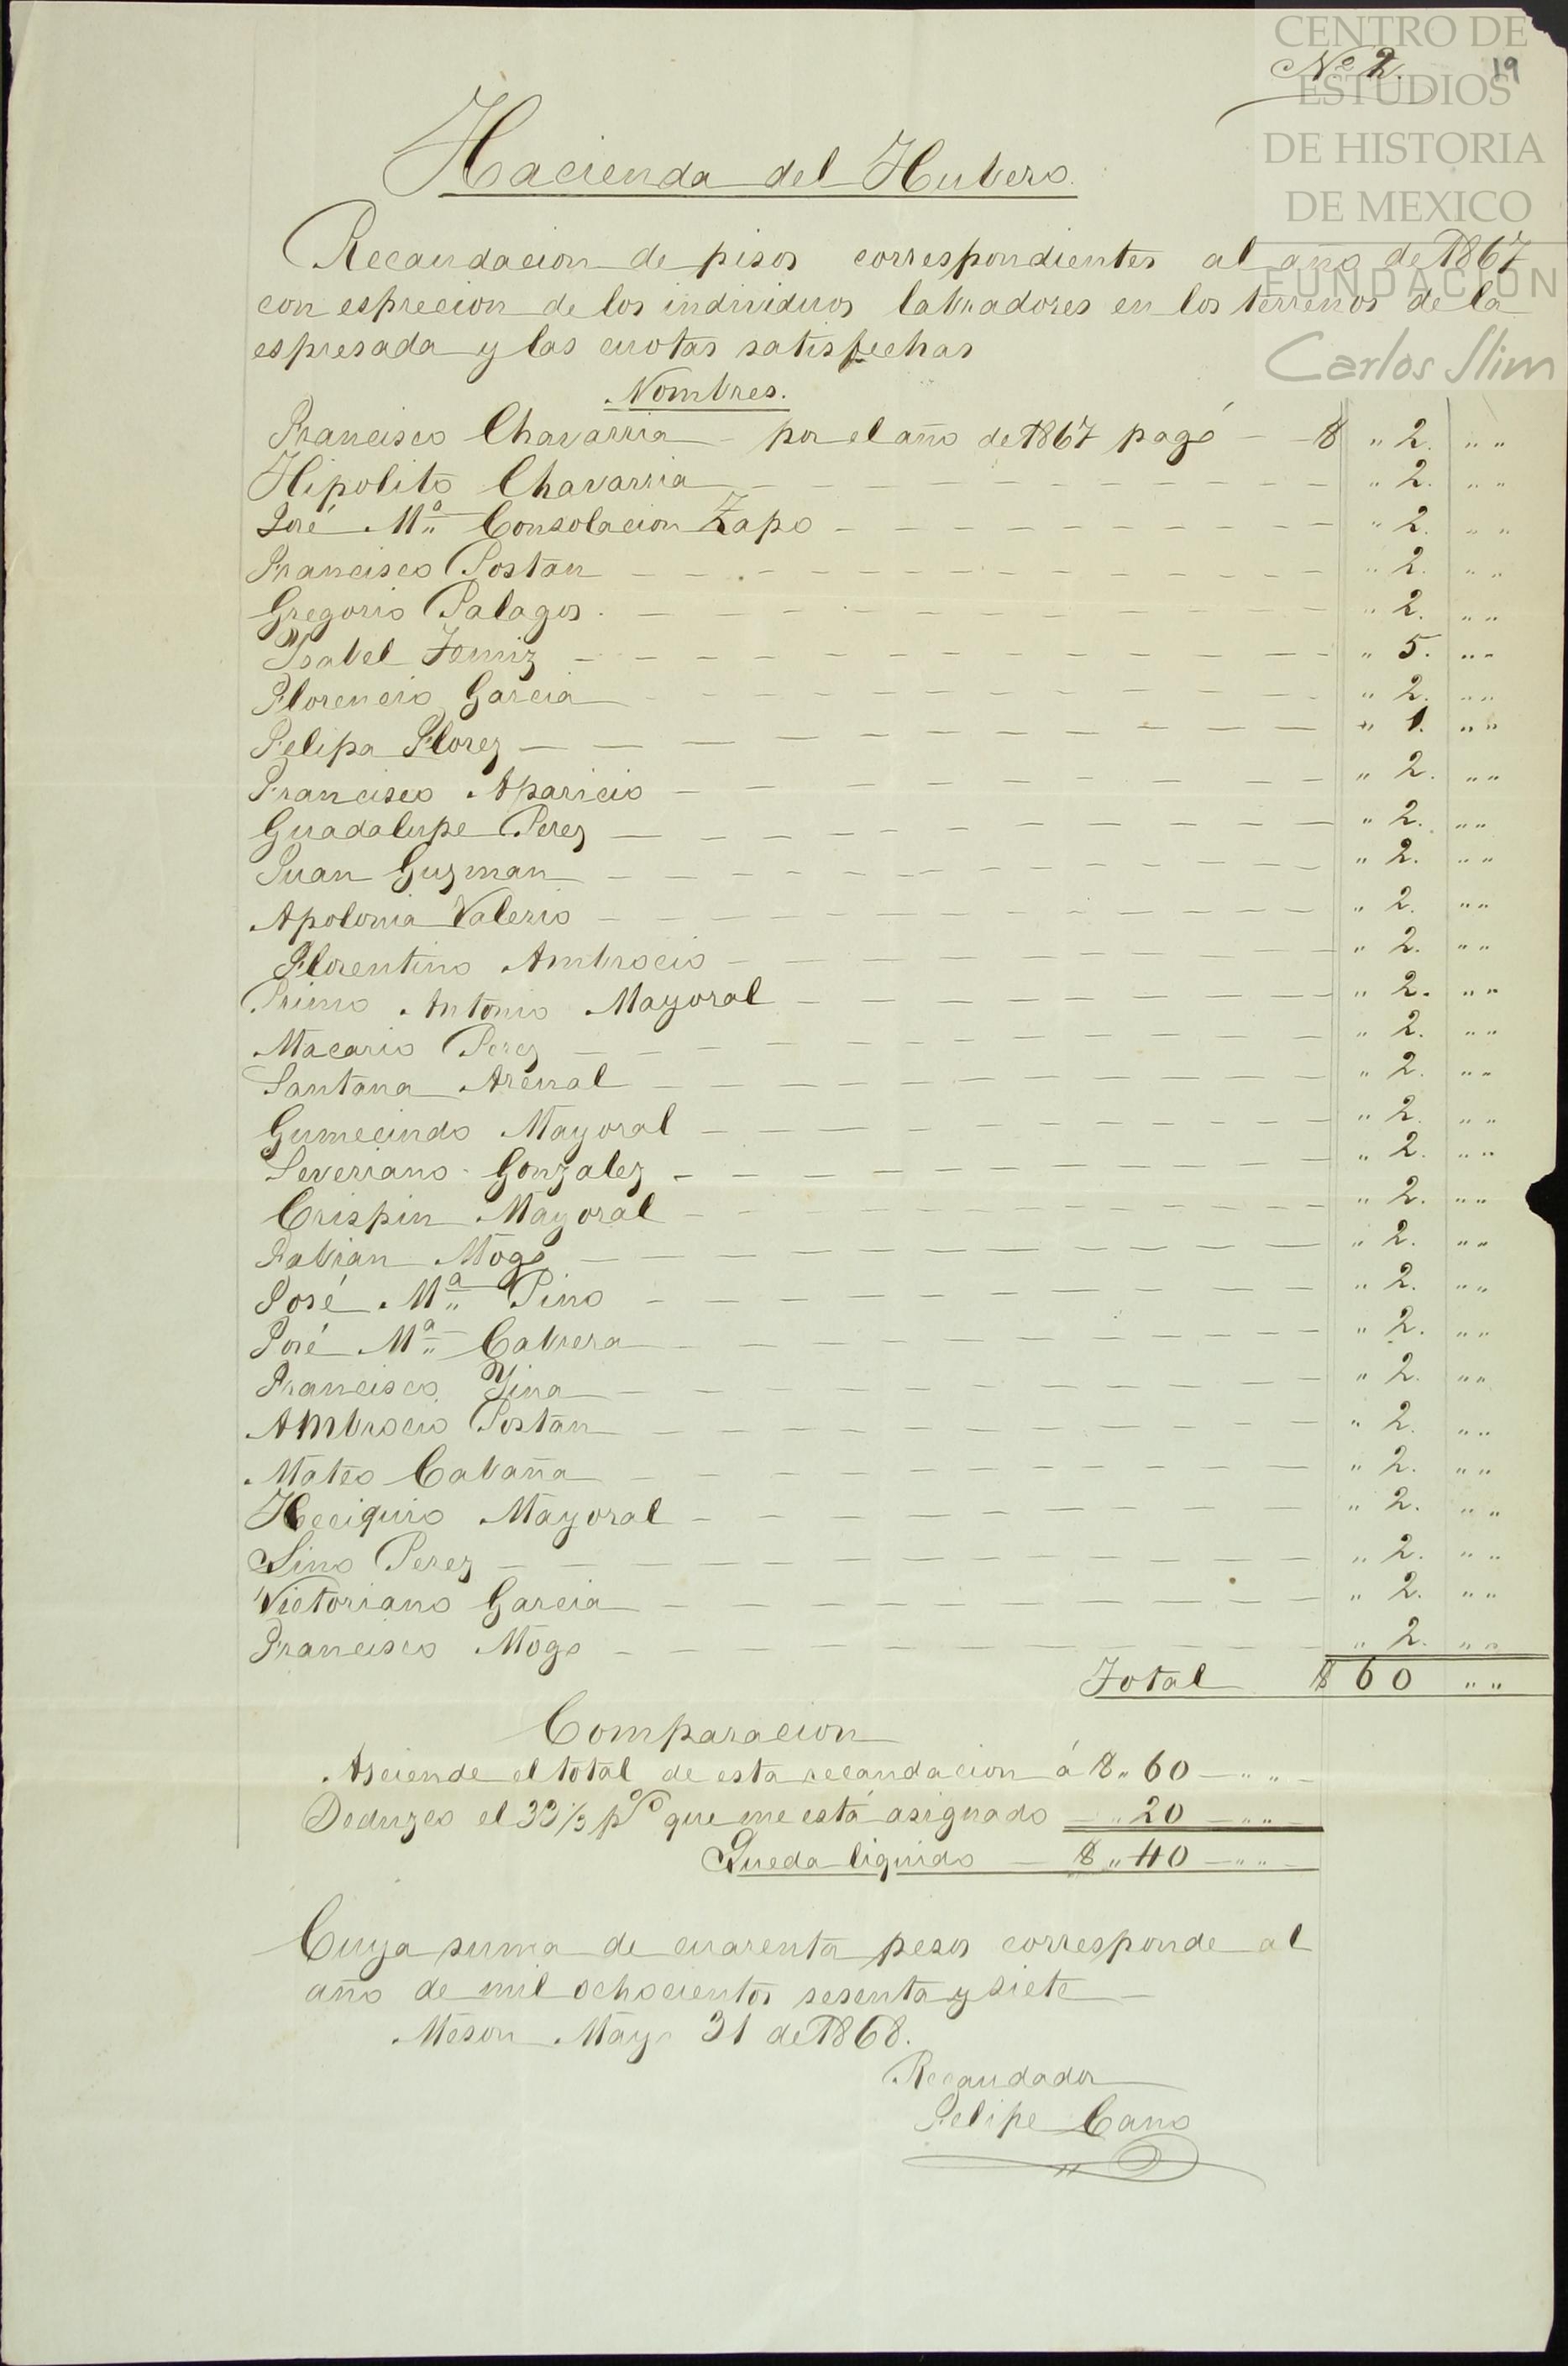 CENTRO DE
ESTUDIOS
DE HISTORIA
DE MEXICO
FUNDACION
Carlos Slim
Nº 2.
19
Hacienda del Hubero.
Recaudacion de pisos correspondientes al año de 1867
con esprecion de los individuos labradores en los terrenos de la
espresada y las cuotas satisfechas
Nombres.
Francisco Chavarria - por el año de 1867 pagó - $ " 2. " "
Hipolito Chavarria " 2. " "
José Mª Consolacion Zapo " 2. " "
Francisco Postan " 2. " "
Gregorio Palagos. " 2. " "
Ysabel " 5. " "
Florencio Garcia " 2. " "
Felipa Florez " 1. " "
Francisco Aparicio " 2. " "
Guadalupe Perez " 2. " "
Juan Guzman " 2. " "
Apolonia Valerio " 2. " "
Florentino Ambrocio " 2. " "
Primo Antonio Mayoral " 2. " "
Macario Perez " 2. " "
Santana Arenal " 2. " "
Gumecindo Mayoral " 2. " "
Severiano Gonzalez " 2. " "
Crispin Mayoral " 2. " "
Fabian Mogo " 2. " "
José Mª Pino " 2. " "
José Mª Cabrera " 2. " "
Francisco " 2. " "
Ambrocio Postan " 2. " "
Mateo Cabaña " 2. " "
Heciquio Mayoral " 2. " "
Lino Perez " 2. " "
Victoriano Garcia " 2. " "
Francisco Mogo " 2. " "
Total $ 60 " "
Comparacion
Asciende el total de esta recaudacion á $ " 60 - " "
Deduzco el 33 1/3 p% que me está asignado - " 20 - " "
Queda liquido - $ " 40 - " "
Cuya suma de cuarenta pesos corresponde al
año de mil ochocientos sesenta y siete
Meson Mayo 31 de 1868.
Recaudador
Felipe Cano